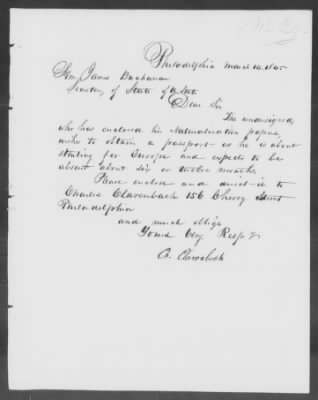 Philadelphia March 24. 1845
Hon. James Buchanan
Secretary of State of U State
Dear Sir
The undersigned
who has enclosed his Naturalization papers
wishes to obtain a passport as he is about
starting for Europe and expects to be
absent about six or twelve months,
Please enclose and direct it to
Charles Clarenbach 156 Cherry Street
Philadelphia
and much oblige
Yours Very Resp'y
C. Clarenbach